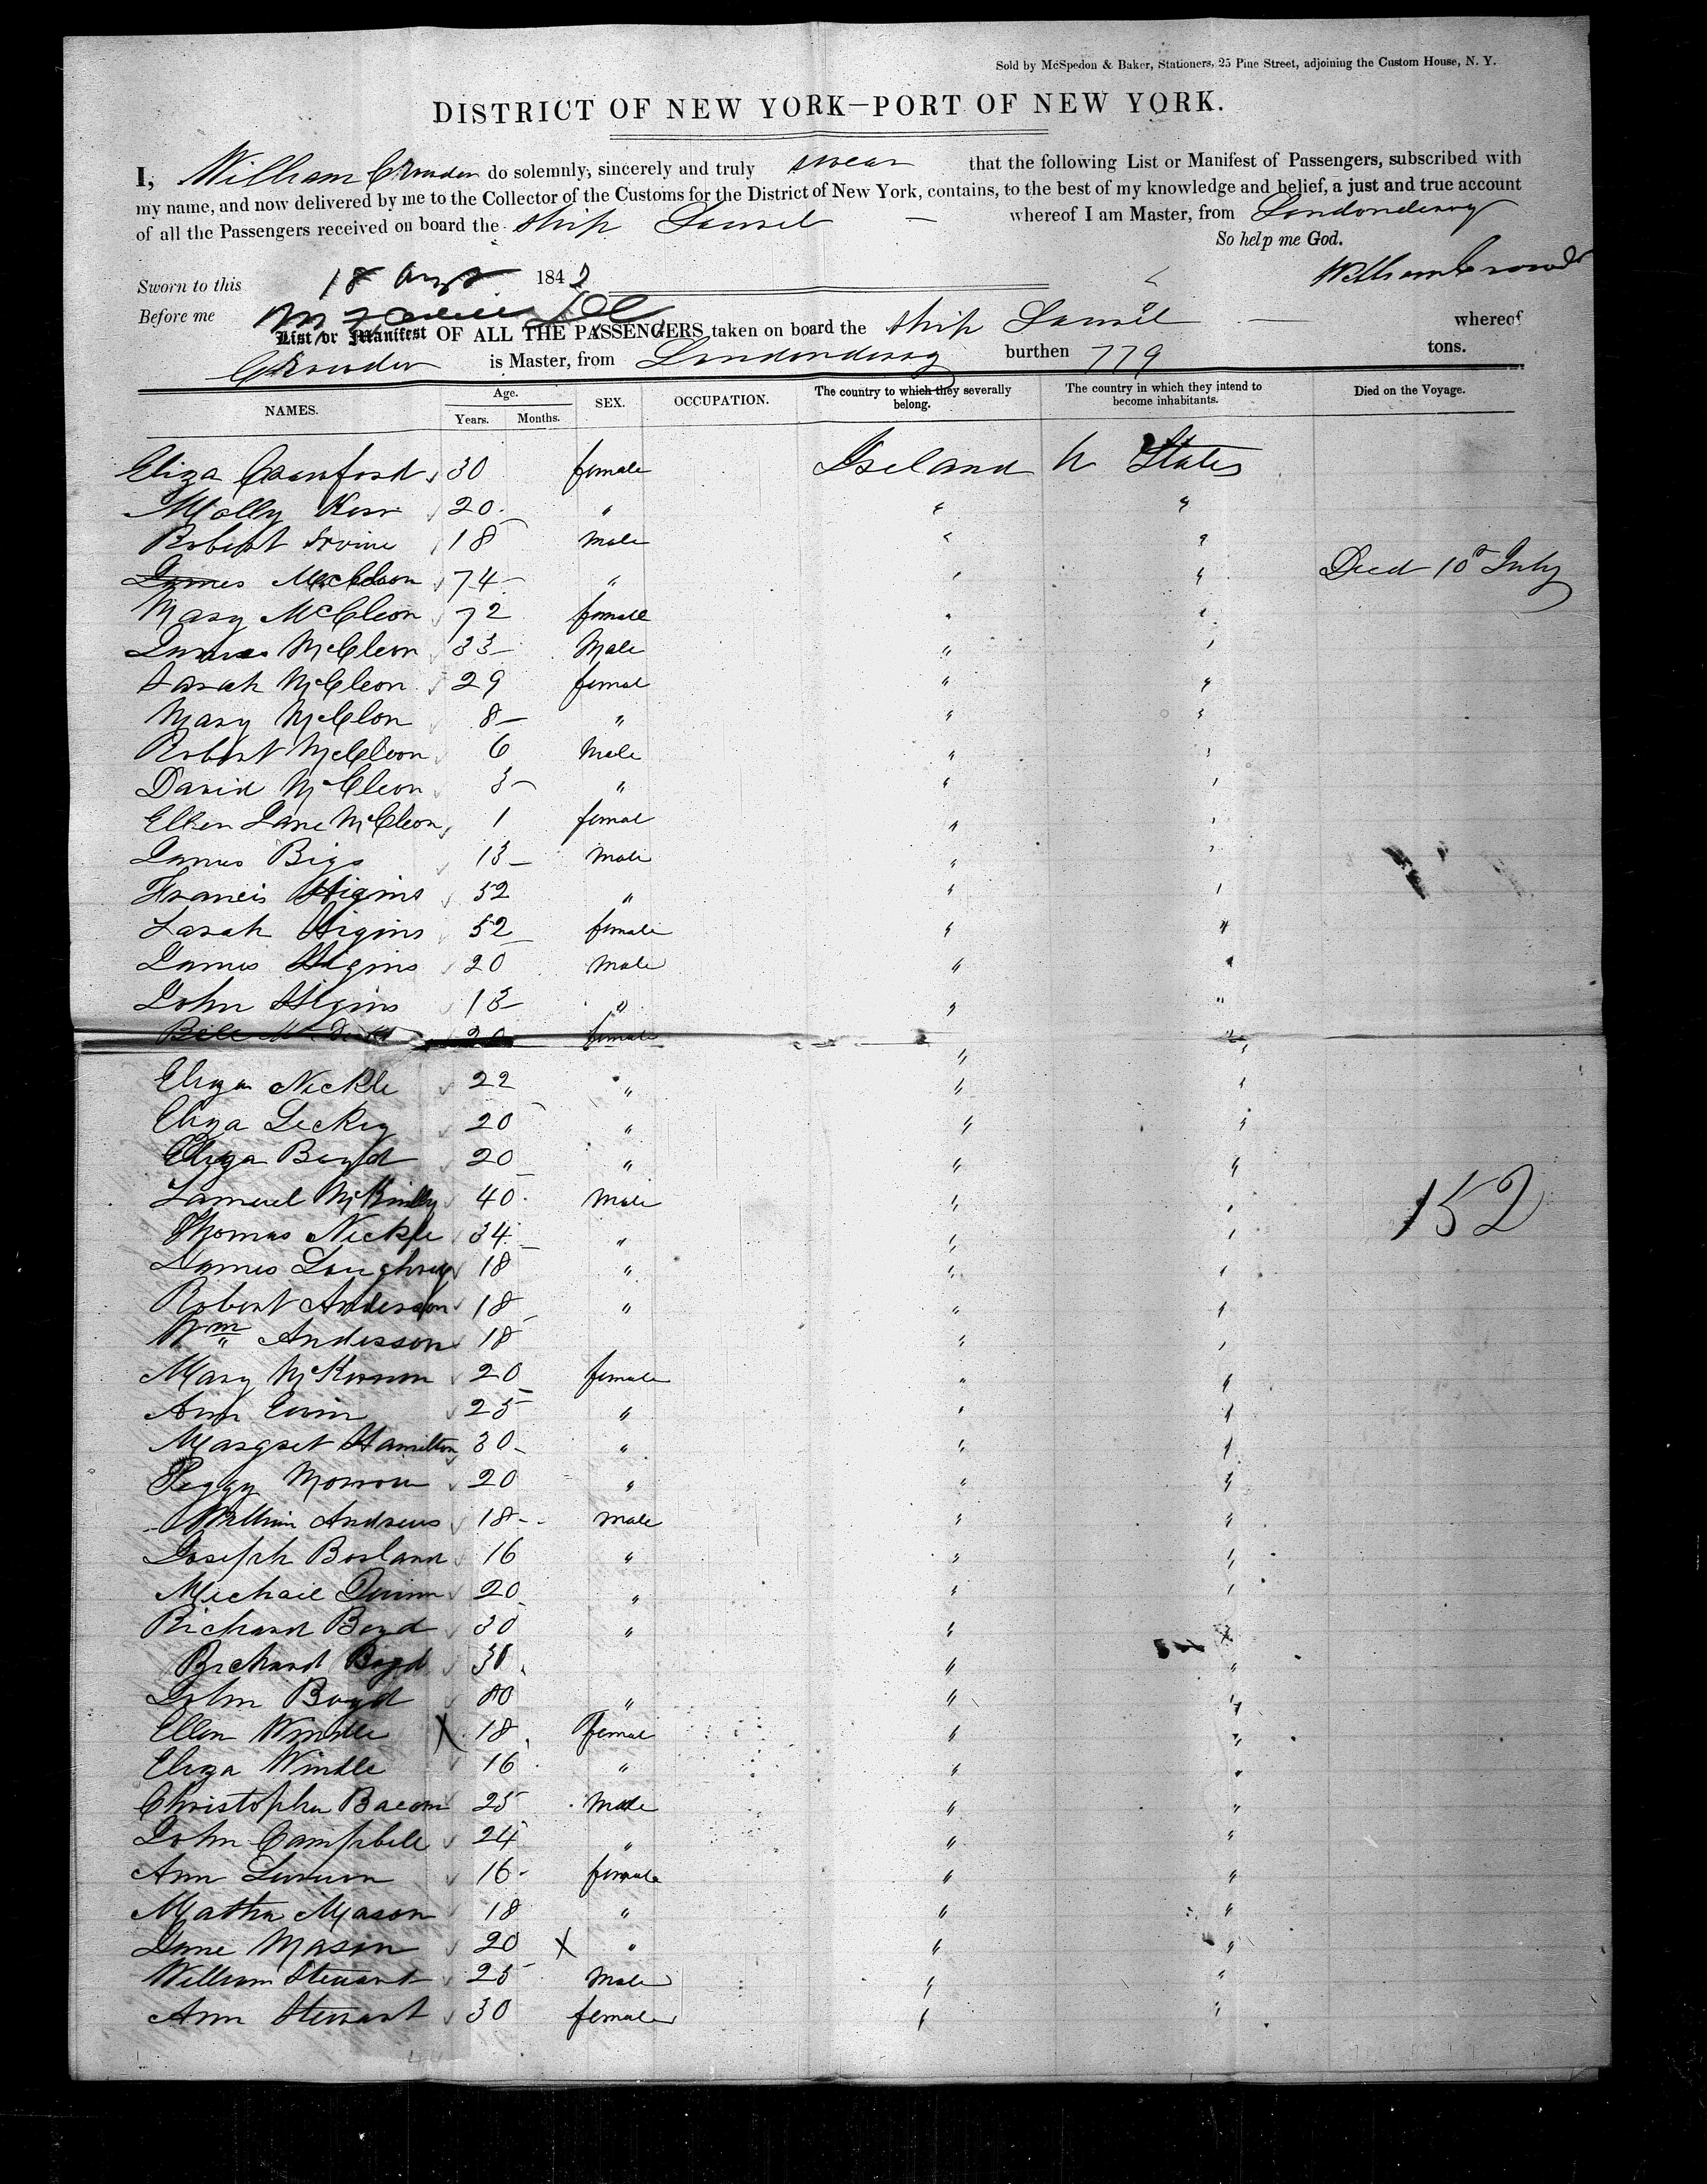 Sold by McSpedon & Baker, Stationers, 25 Pine Street, adjoining the Custom House, N. Y.
DISTRICT OF NEW YORK—PORT OF NEW YORK.
I, William Crowder do solemnly, sincerely and truly swear that the following List or Manifest of Passengers, subscribed with
my name, and now delivered by me to the Collector of the Customs for the District of New York, contains, to the best of my knowledge and belief, a just and true account
of all the Passengers received on board the ship Laurel whereof I am Master, from Londonderry
So help me God.
Sworn to this 18 Augt 1842 William Crowder
Before me
List or Manifest OF ALL THE PASSENGERS taken on board the ship Laurel whereof
Crowder is Master, from Londonderry burthen 779 tons.
NAMES. Age. Years. Months. SEX. OCCUPATION. The country to which they severally belong. The country in which they intend to become inhabitants. Died on the Voyage.
Eliza Crawford 30 female Ireland U States
Molly Kerr 20 " " "
Robert Irvine 18 Male " "
James McCleon 74 " " " Died 10th July
Mary McCleon 72 female " "
James McCleon 33 Male " "
Sarah McCleon 29 femal " "
Mary McClon 8 " " "
Robert McCleon 6 Male " "
David McCleon 3 " " "
Ellen Jane McCleon 1 femal " "
James Bigs 13 Male " "
Francis Higins 52 " " "
Sarah Higins 52 female " "
James Higins 20 Male " "
John Higins 13 " " "
Bell 20 female
Eliza Nickle 22 " " "
Eliza Leckey 20 " " "
Eliza Boyd 20 " " "
Samuel McKinley 40 Male " " 152
Thomas Nickle 34 " " "
James Loughrey 18 " " "
Robert Anderson 18 " " "
Wm Andersson 18 " "
Mary McKinnon 20 female " "
Ann 25 " " "
Margret Hamilton 30 " " "
Peggy Morrow 20 " " "
William Andrews 18 male " "
Joseph Borland 16 " " "
Michail Quinn 20 " " "
Richard Boyd 30 " " "
Richard Boyd 30 " "
John Boyd 80 " " "
Ellen Windle X 18 Female " "
Eliza Windle 16 " " "
Christopher Bacom 25 Male " "
John Campbell 24 " " "
Ann 16 female " "
Matha Mason 18 " " "
Jane Mason 20 X " " "
William Stewart 25 Male " "
Ann Stewart 30 female " "